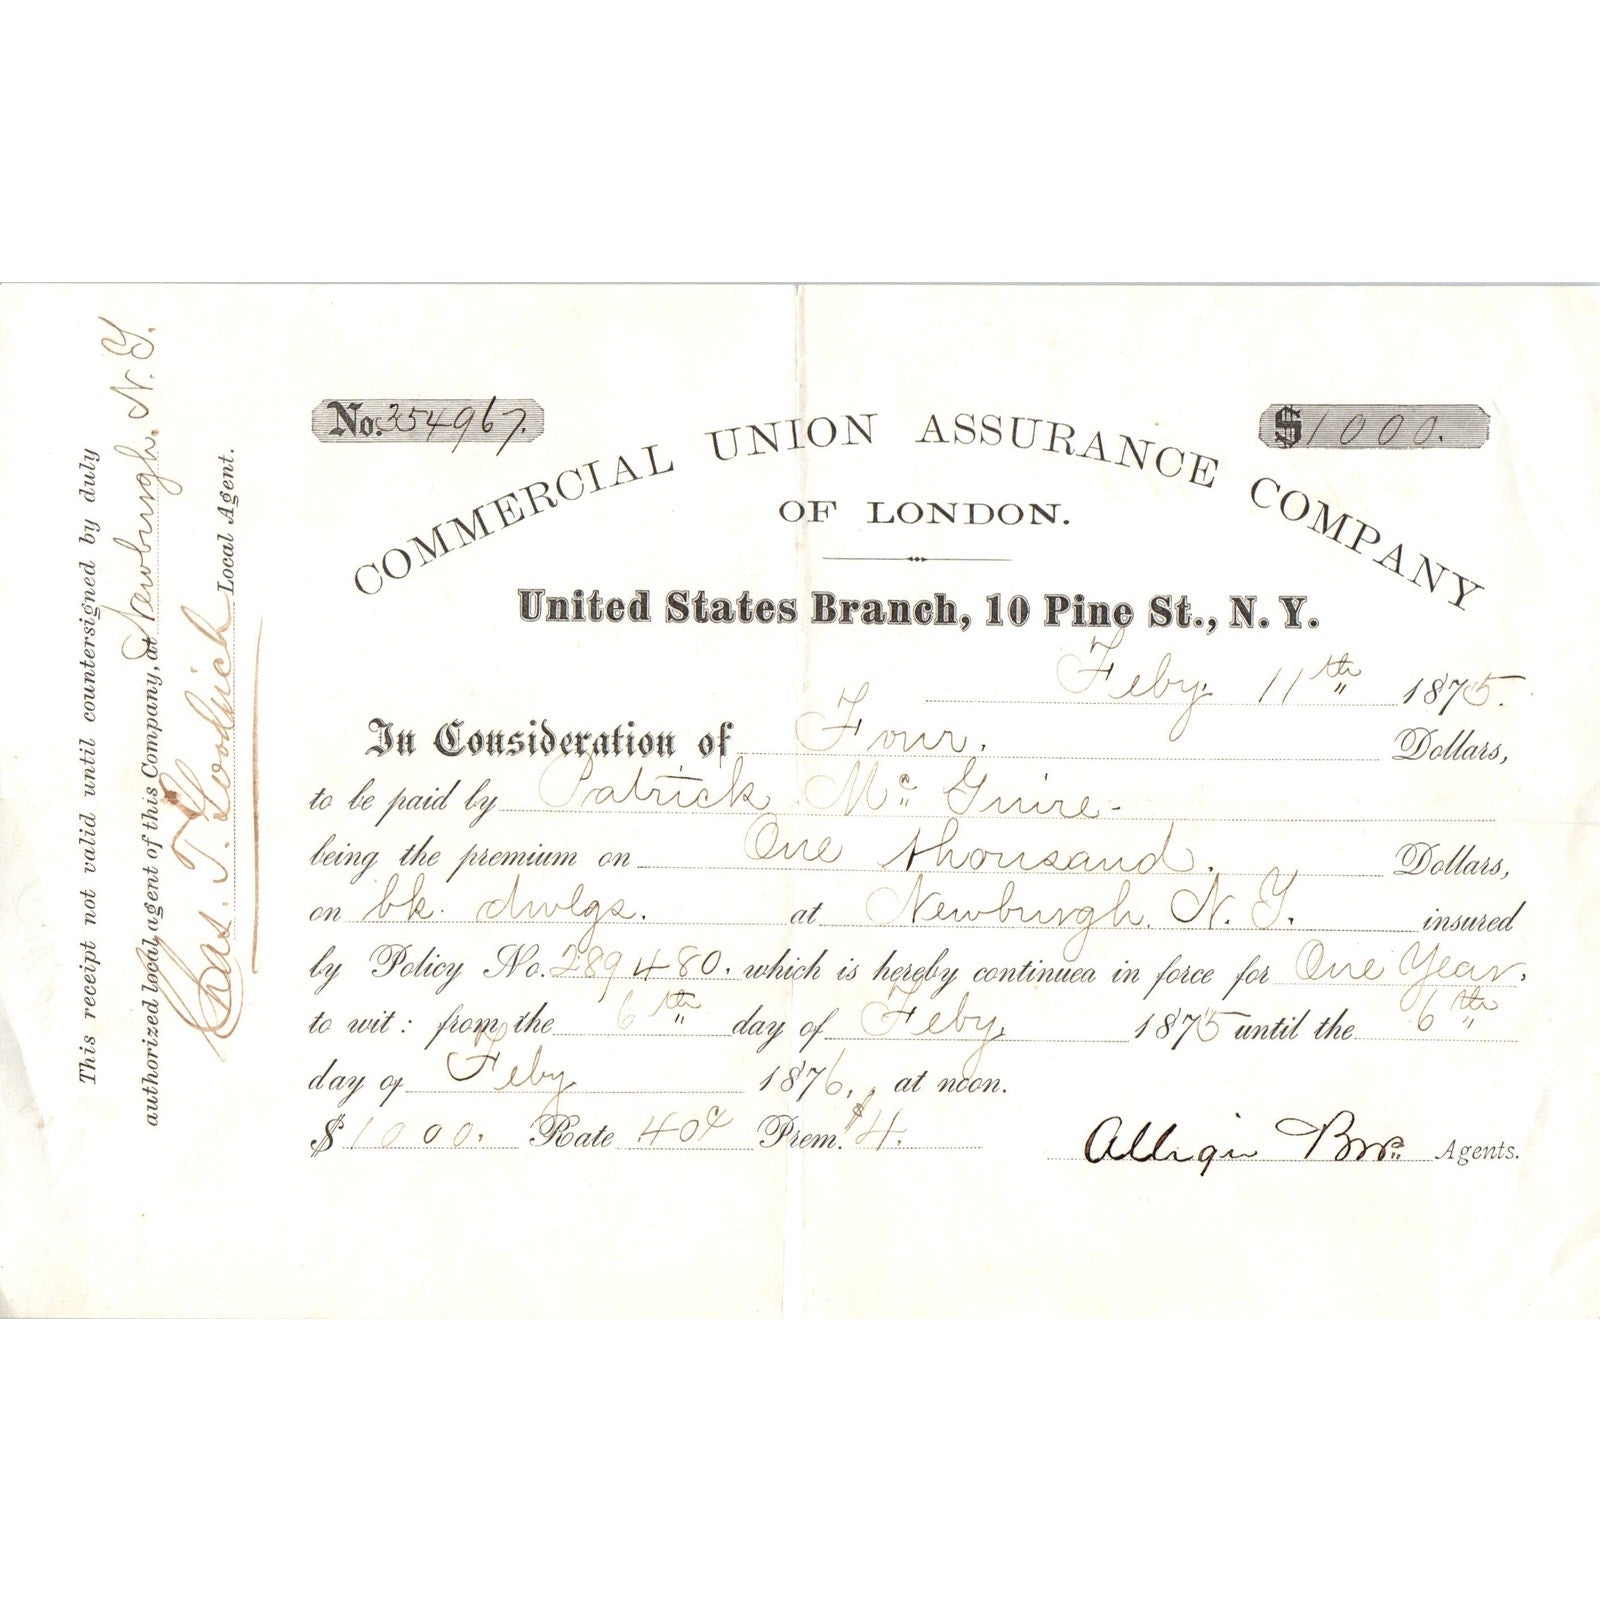 No. 354967.
$1000.
COMMERCIAL UNION ASSURANCE COMPANY
OF LONDON.
United States Branch, 10 Pine St., N. Y.
Feby. 11th 1875.
In Consideration of Four. Dollars,
to be paid by Patrick Mc Guire-
being the premium on One thousand. Dollars,
on bk. dwlgs. at Newburgh. N. Y. insured
by Policy No. 289480. which is hereby continued in force for One Year,
to wit: from the 6th day of Feby. 1875 until the 6th
day of Feby 1876, at noon.
$1000. Rate 40c Prem. $4.
Bros. Agents.
This receipt not valid until countersigned by duly
authorized local agent of this Company, at Newburgh. N. Y.
Chas. T. Goodrich Local Agent.